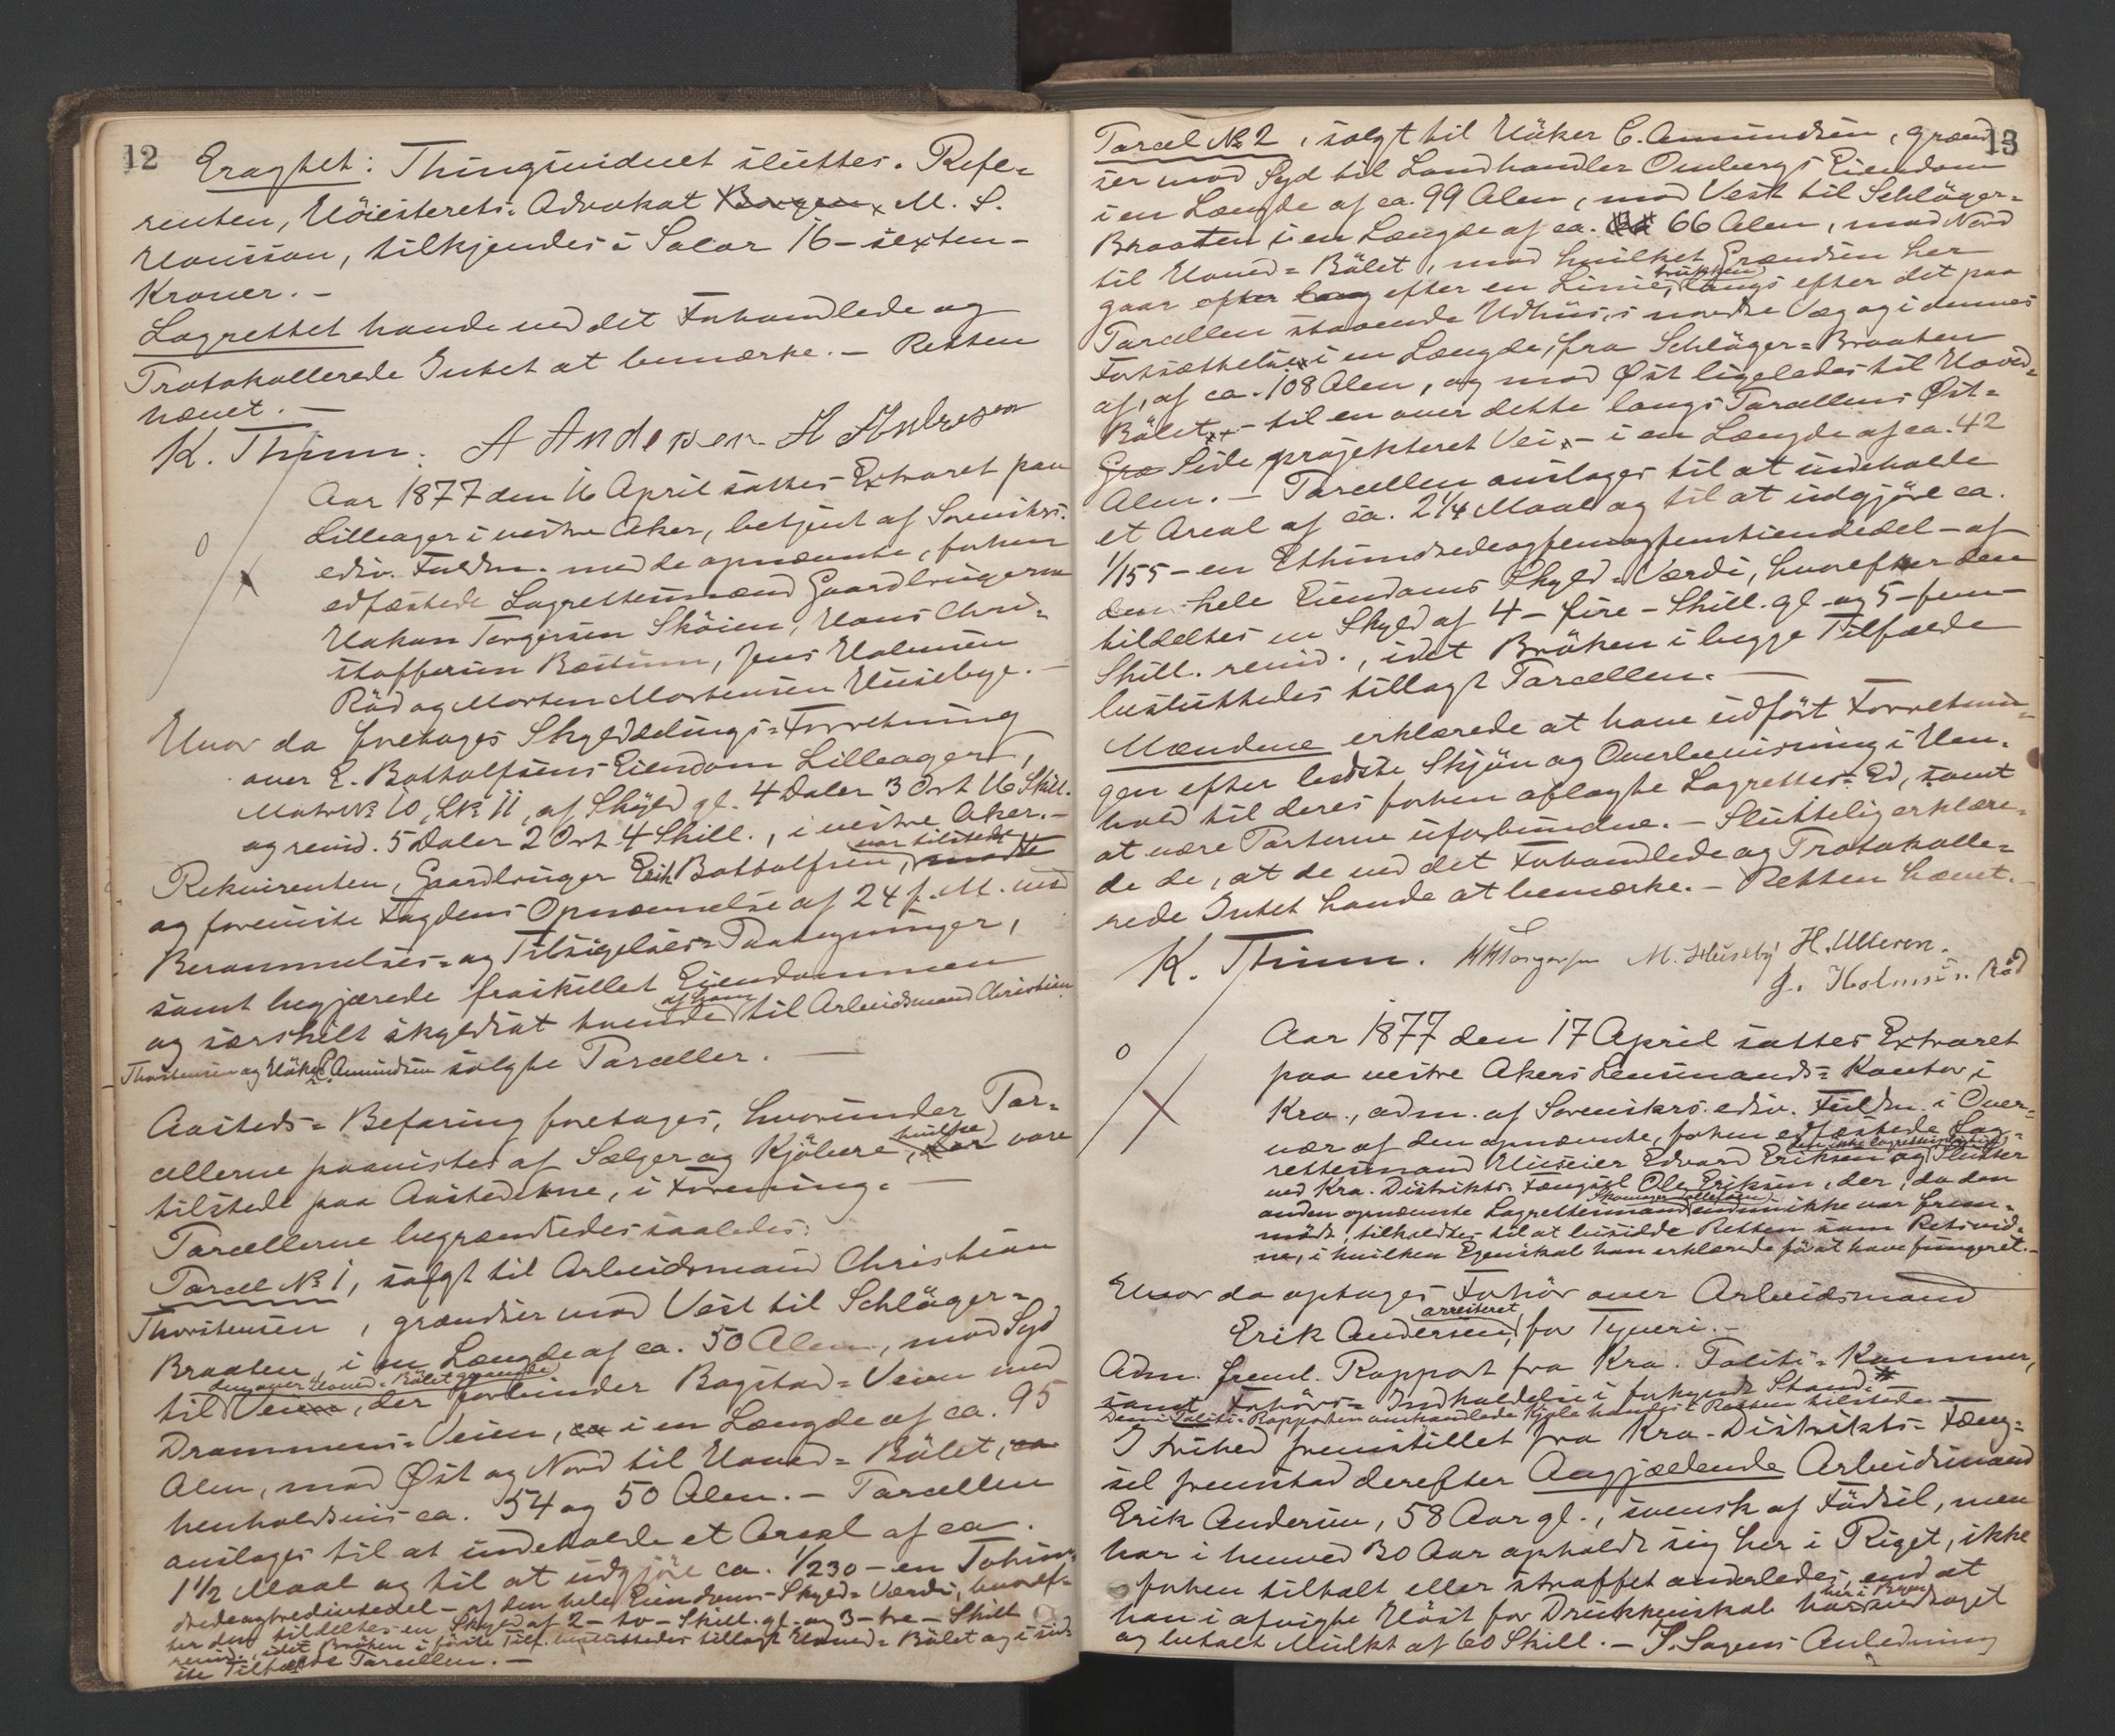 12
Eragtet: Thingsvidnet sluttes. Refe=
renten, Høiesterets-Advokat Borgen M. S.
Monsson, tilkjendes i Salær 16 - sexten -
Kroner. -
Lagrettet havde ved det Forhandlede og
Protokollerede Intet at bemærke. - Retten
hævet. -
K. Thinn. A Andersen H Andresen
Aar 1877 den 16 April sattes Extraret paa
Lilleager i vestre Aker, betjent af Sorenskrs.
edsv. Fuldm. med de opnævnte, forhen
edfæstede Lagrettesmænd Gaardbrugerne
Hakon Torgersen Skøien, Hans Chri=
stoffersen Bæstum, Jens Holmsen
Röd og Morten Mortensen Huseby. -
Hvor da foretoges Skylddelings=Forretning
over E. Bottolfsens Eiendom Lilleager,
Matr № 10, L№ 11, af Skyld gl. 4 Daler 3 Ort 16 Skill.
og revid. 5 Daler 2 Ort 4 Skill., i vestre Aker. -
var tilstede
Rekvirenten, Gaardbruger Erik Bottolfsen, mødte
og foreviste Fogdens Opnævnelse af 24 f. M. med
Berammelses= og Tilsigelses=Paategninger,
samt begjærede fraskillet Eiendommen
af ham
og særskilt skyldsat tvende til Arbeidsmand Christian
Thorstensen og Höker C. Amundsen solgte Parceller. -
Aasteds=Befaring foretoges, hvorunder Par=
cellerne paavistes af Sælger og Kjöbere, hvilke der vare
tilstede paa Aastederne, i Forening. -
Parcellerne begrændsedes saaledes:
Parcel № 1, solgt til Arbeidsmand Christian
Thorstensen, grændser mod Vest til Schlöger=
Braaten i en Længde af ca. 50 Alen, mod Syd
den over Hoved=Bölet gaaende
til Veien, der forbinder Bogstad=Veien med
Drammens=Veien, ca i en Længde af ca. 95
Alen, mod Øst og Nord til Hoved=Bölet, ca
henholdsvis ca. 54 og 50 Alen. - Parcellen
anslages til at indeholde et Areal af ca.
1½ Maal og til at udgjöre ca. 1/230 - en Tohun=
dredeogtrediendedel - af den hele Eiendoms Skyld=Værdi, hvoref=
ter den tildeltes en Skyld af 2 - to - Skill. gl. og 3 - tre - Skill
revid., idet Bröken i förste Tilf. besluttedes tillagt Hoved=Bölet og i sid=
ste Tilfælde Parcellen. -
13
Parcel № 2, solgt til Höker C. Amundsen, grænd
ser mod Syd til Landhandler Ombergs Eiendom
i en Længde af ca. 99 Alen, mod Vest til Schlöger=
Braaten i en Længde af ca. 66 Alen, mod Nord
til Hoved=Bölet, mod hvilket Grændsen her
trukken
gaar efter lang efter en Linie, langs efter det paa
Parcellen staaende Udhus's nordre Væg og i dennes
Fortsættelse i en Længde, fra Schlöger=Braaten
af, af ca. 108 Alen, og mod Øst ligeledes til Hoved=
Bölet - til en over dette langs Parcellens Øst=
Græ Side projekteret Vei - i en Længde af ca. 42
Alen. - Parcellen anslages til at indeholde
et Areal af ca. 2¼ Maal og til at udgjöre ca.
1/155 - en Ethundredeogfemogfemtiendedel - af
den hele Eiendoms Skyld=Værdi, hvorefter den
tildeltes en Skyld af 4 - fire - Skill. gl. og 5 - fem -
Skill. revid., idet Bröken i begge Tilfælde
besluttedes tillagt Parcellen. -
Mændene erklærede at have udfört Forretnin=
gen efter bedste Skjön og Overbevisning i Hen=
hold til deres forhen aflagte Lagrettes=Ed, samt
at være Parterne uforbundne. - Sluttelig erklære=
de de, at de ved det Forhandlede og Protokolle=
rede Intet havde at bemærke. - Retten hævet. -
K. Thinn. HTorgersen M. Huseby H.
J. Holmsen. Röd
Aar 1877 den 17 April sattes Extraret
paa vestre Akers Lensmands=Kontor i
Kra., adm. af Sorenskrs. edsv. Fuldm. i Over=
vær af den opnævnte, forhen edfæstede Lag=
rettesmand Huseier Edvard Eriksen og Slutter
ved Kra. Distrikts Fængsel Ole Eriksen, der, da den
anden opnævnte Lagrettesmand endnu ikke var frem=
mödt, tilkaldtes til at besidde Retten som Retsvid=
ne, i hvilken Egenskab han erklærede för at have fungeret. -
Hvor da optages Forhör over Arbeidsmand
arresteret
Erik Andersen, for Tyveri. -
Adm. freml. Rapport fra Kra. Politi=Kammer,
samt Forhörs=Indkaldelse i forkyndt Stand.
Den i Politi=Rapporten omhandlede Kjole havdes i Retten tilstede. -
I Frihed fremstillet fra Kra. Distrikts=Fæng=
sel fremstod derefter Angjældende Arbeidsmand
Erik Andersen, 58 Aar gl., svensk af Födsel, men
har i henved 30 Aar opholdt sig her i Riget, ikke
forhen tiltalt eller straffet anderledes, end at
her i Byen
han i afvigte Höst for Drukkenskab har vedtaget
og betalt Mulkt af 60 Skill. - I Sagens Anledning